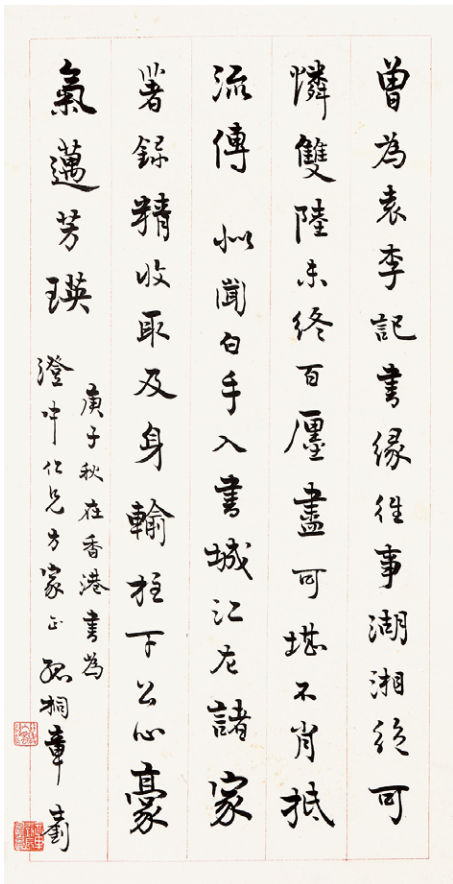 曾為袁李記書緣往事湖湘絕可
憐雙陸未終百廛盡可堪不肖抵
流傳 似聞白手入書城江左諸家
著錄精收取及身輸柱下公心豪
氣邁芳瑛
庚子秋在香港書為
澄中仁兄方家正 孤桐章士釗